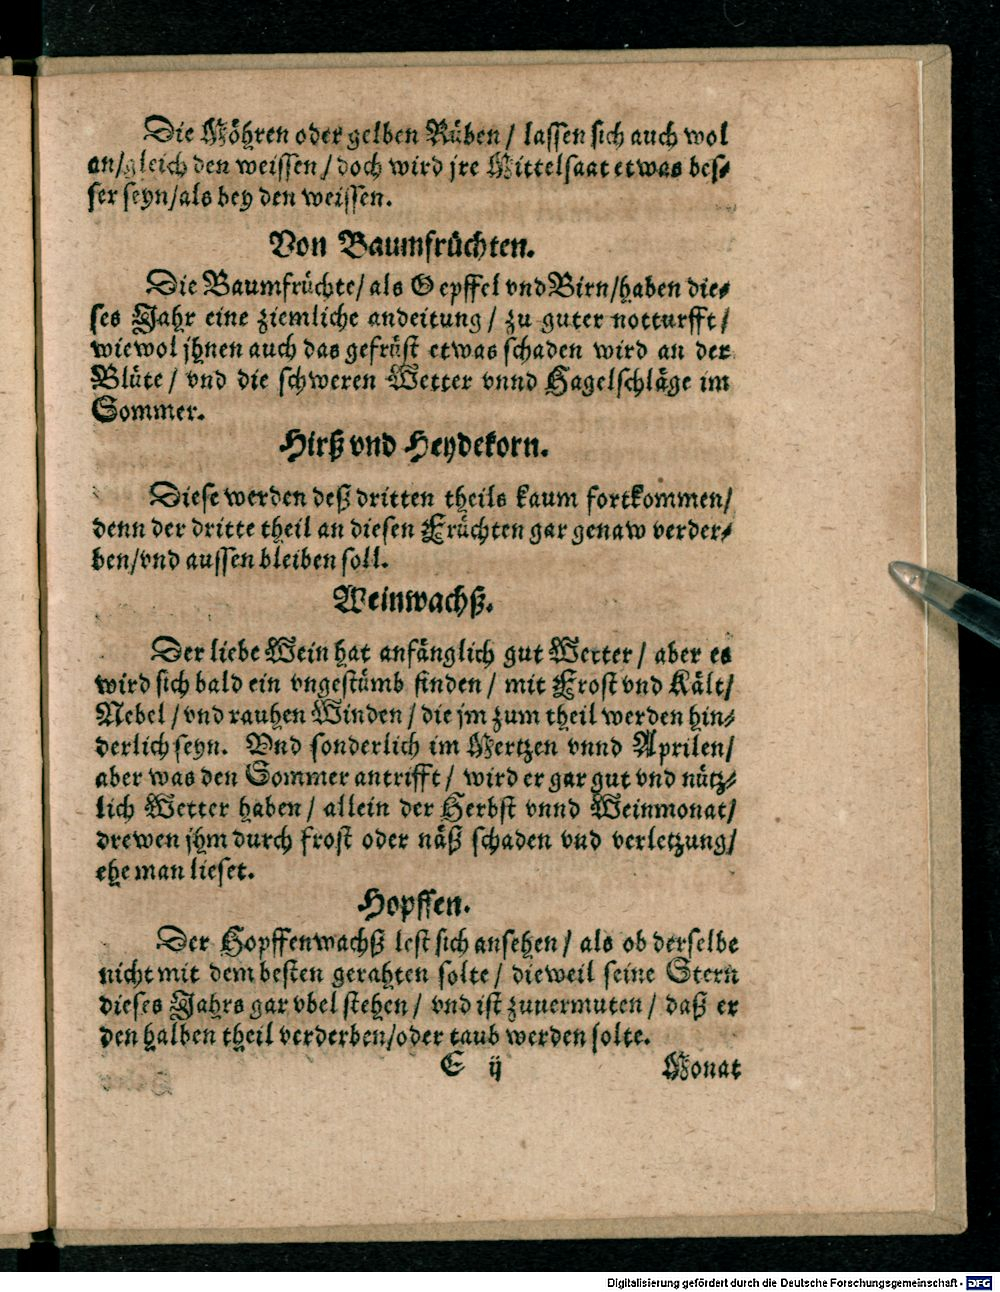 Die Möhren oder gelben Rüben / lassen sich auch wol
an/gleich den weissen / doch wird jre Mittelsaat etwas bes⸗
ser seyn/als bey den weissen.
Von Baumfrüchten.
Die Baumfrüchte/ als Oepffel vnd Birn/haben die⸗
ses Jahr eine ziemliche andeitung / zu guter notturfft/
wiewol jhnen auch das gefröst etwas schaden wird an der
Blüte / vnd die schweren Wetter vnnd Hagelschläge im
Sommer.
Hirß vnd Heydekorn.
Diese werden deß dritten theils kaum fortkommen/
denn der dritte theil an diesen Früchten gar genaw verder⸗
ben/vnd aussen bleiben soll.
Weinwachß.
Der liebe Wein hat anfänglich gut Wetter / aber es
wird sich bald ein vngestümb finden / mit Frost vnd Kält/
Nebel / vnd rauhen Winden / die jm zum theil werden hin⸗
derlich seyn. Vnd sonderlich im Mertzen vnnd Aprilen/
aber was den Sommer antrifft / wird er gar gut vnd nütz⸗
lich Wetter haben / allein der Herbst vnnd Weinmonat/
drewen jhm durch frost oder näß schaden vnd verletzung/
ehe man lieset.
Hopffen.
Der Hopffenwachß lest sich ansehen / als ob derselbe
nicht mit dem besten gerahten solte / dieweil seine Stern
dieses Jahrs gar vbel stehen / vnd ist zuuermuten / daß er
den halben theil verderben/oder taub werden solte.
E ij Monat
Digitalisierung gefördert durch die Deutsche Forschungsgemeinschaft - DFG